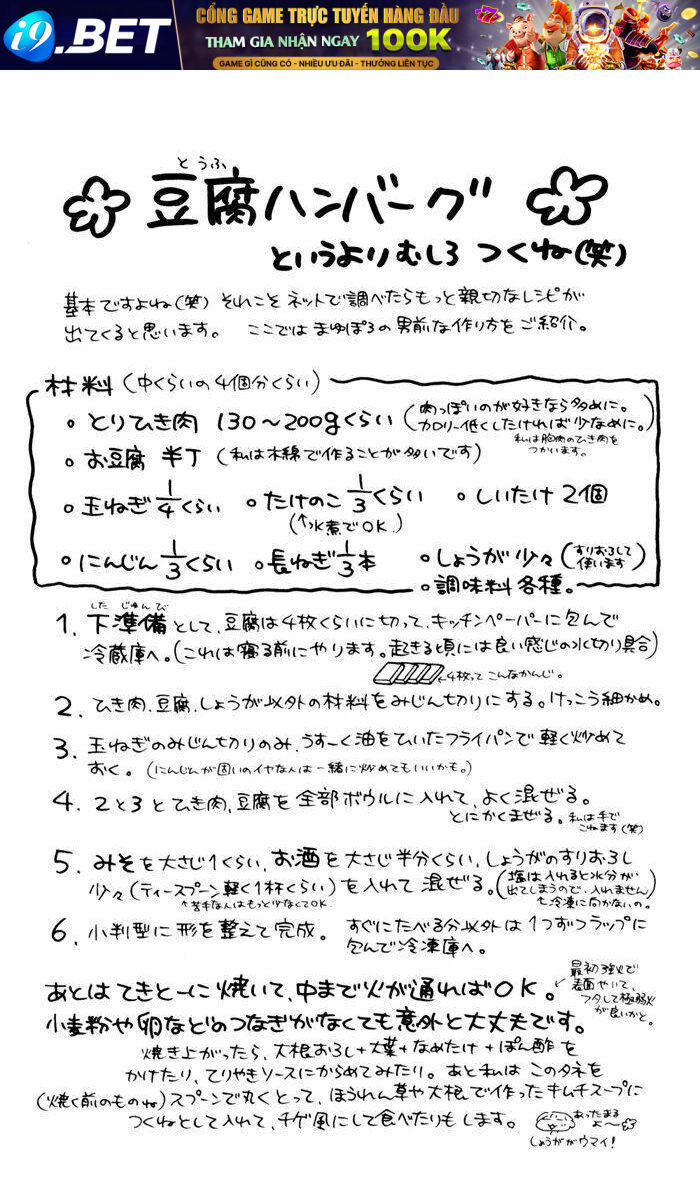 i9.BET
CỔNG GAME TRỰC TUYẾN HÀNG ĐẦU
THAM GIA NHẬN NGAY 100K
GAME GÌ CŨNG CÓ - NHIỀU ƯU ĐÃI - THƯỞNG LIÊN TỤC
とうふ
豆腐ハンバーグ
というよりむしろ つくね(笑)
基本ですよね(笑) それこそネットで調べたらもっと親切なレシピが
出てくると思います。 ここではまゆぽろの男前な作り方をご紹介。
材料(中くらいの4個分くらい)
。とりひき肉 130～200gくらい(肉っぽいのが好きなら多めに。
カロリー低くしたければ少なめに。)
私は胸肉のひき肉を
つかいます。
。お豆腐 半丁(私は木綿で作ることが多いです)
。玉ねぎ1/4くらい 。たけのこ1/3くらい 。しいたけ2個
(↑水煮でOK.)
。にんじん1/3くらい 。長ねぎ1/3本 。しょうが少々(すりおろして
使います)
。調味料各種。
したじゅんび
1. 下準備として、豆腐は4枚くらいに切って、キッチンペーパーに包んで
冷蔵庫へ。(これは寝る前にやります。起きる頃には良い感じの水切り具合)
←4枚って こんなかんじ。
2. ひき肉、豆腐、しょうが以外の材料をみじん切りにする。けっこう細かめ。
3. 玉ねぎのみじん切りのみ、うすーく油をひいたフライパンで軽く炒めて
おく。(にんじんが固いのイヤな人は一緒に炒めてもいいかも。)
4. 2と3とひき肉、豆腐を全部ボウルに入れて、よく混ぜる。
とにかくまぜる。私は手で
こねます(笑)
5. みそを大さじ1くらい、お酒を大さじ半分くらい、しょうがのすりおろし
少々(ティースプーン軽く1杯くらい)を入れて混ぜる。(塩は入れると水分が
出てしまうので、入れません)
↑苦手な人はもっと少なくてOK.
↳冷凍に向かないの。
6. 小判型に形を整えて完成。 すぐにたべる分以外は1つずつラップに
包んで冷凍庫へ。
あとはてきとーに焼いて、中まで火が通ればOK。
↙最初強火で
表面やいて、
フタして極弱火
が良いかと。
小麦粉や卵などのつなぎがなくても意外と大丈夫です。
焼き上がったら、大根おろし+大葉+なめたけ+ぽん酢を
かけたり、てりやきソースにからめてみたり。あと私はこのタネを
(焼く前のものね)スプーンで丸くとって、ほうれん草や大根で作ったキムチスープに
つくねとして入れて、チゲ風にして食べたりもします。
あったまる
よ～
しょうががウマイ!